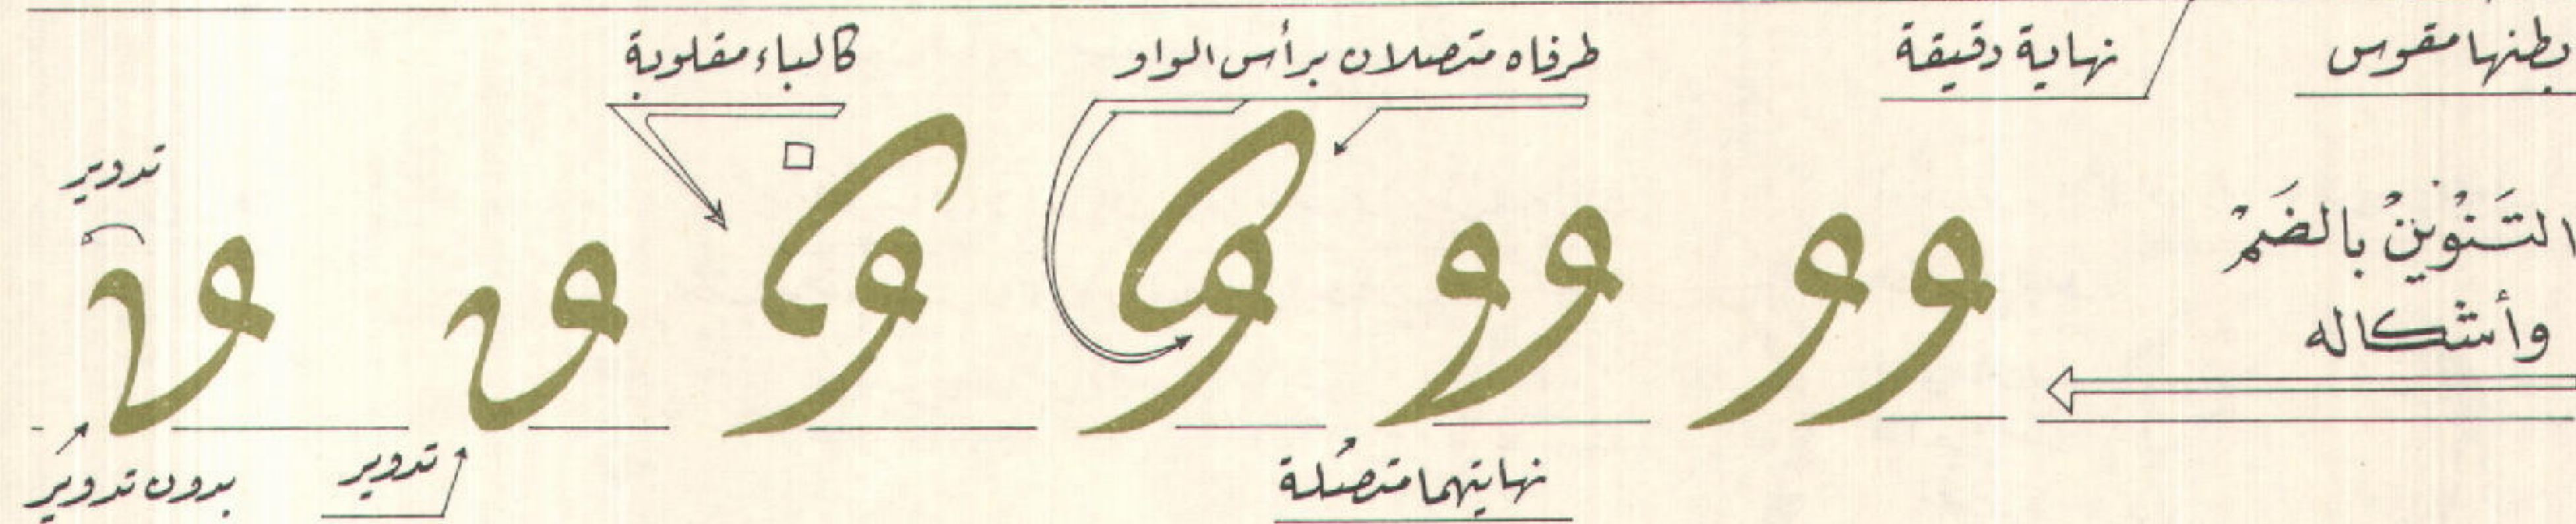 بطنها مقوس
نهاية دقيقة
طرفاه متصلان برأس الواو
كالباء مقلوبة
تدوير
التَنْوينُ بالضَمْ
وأشكاله
نهايتهما متصلة
تدوير
بدون تدوير